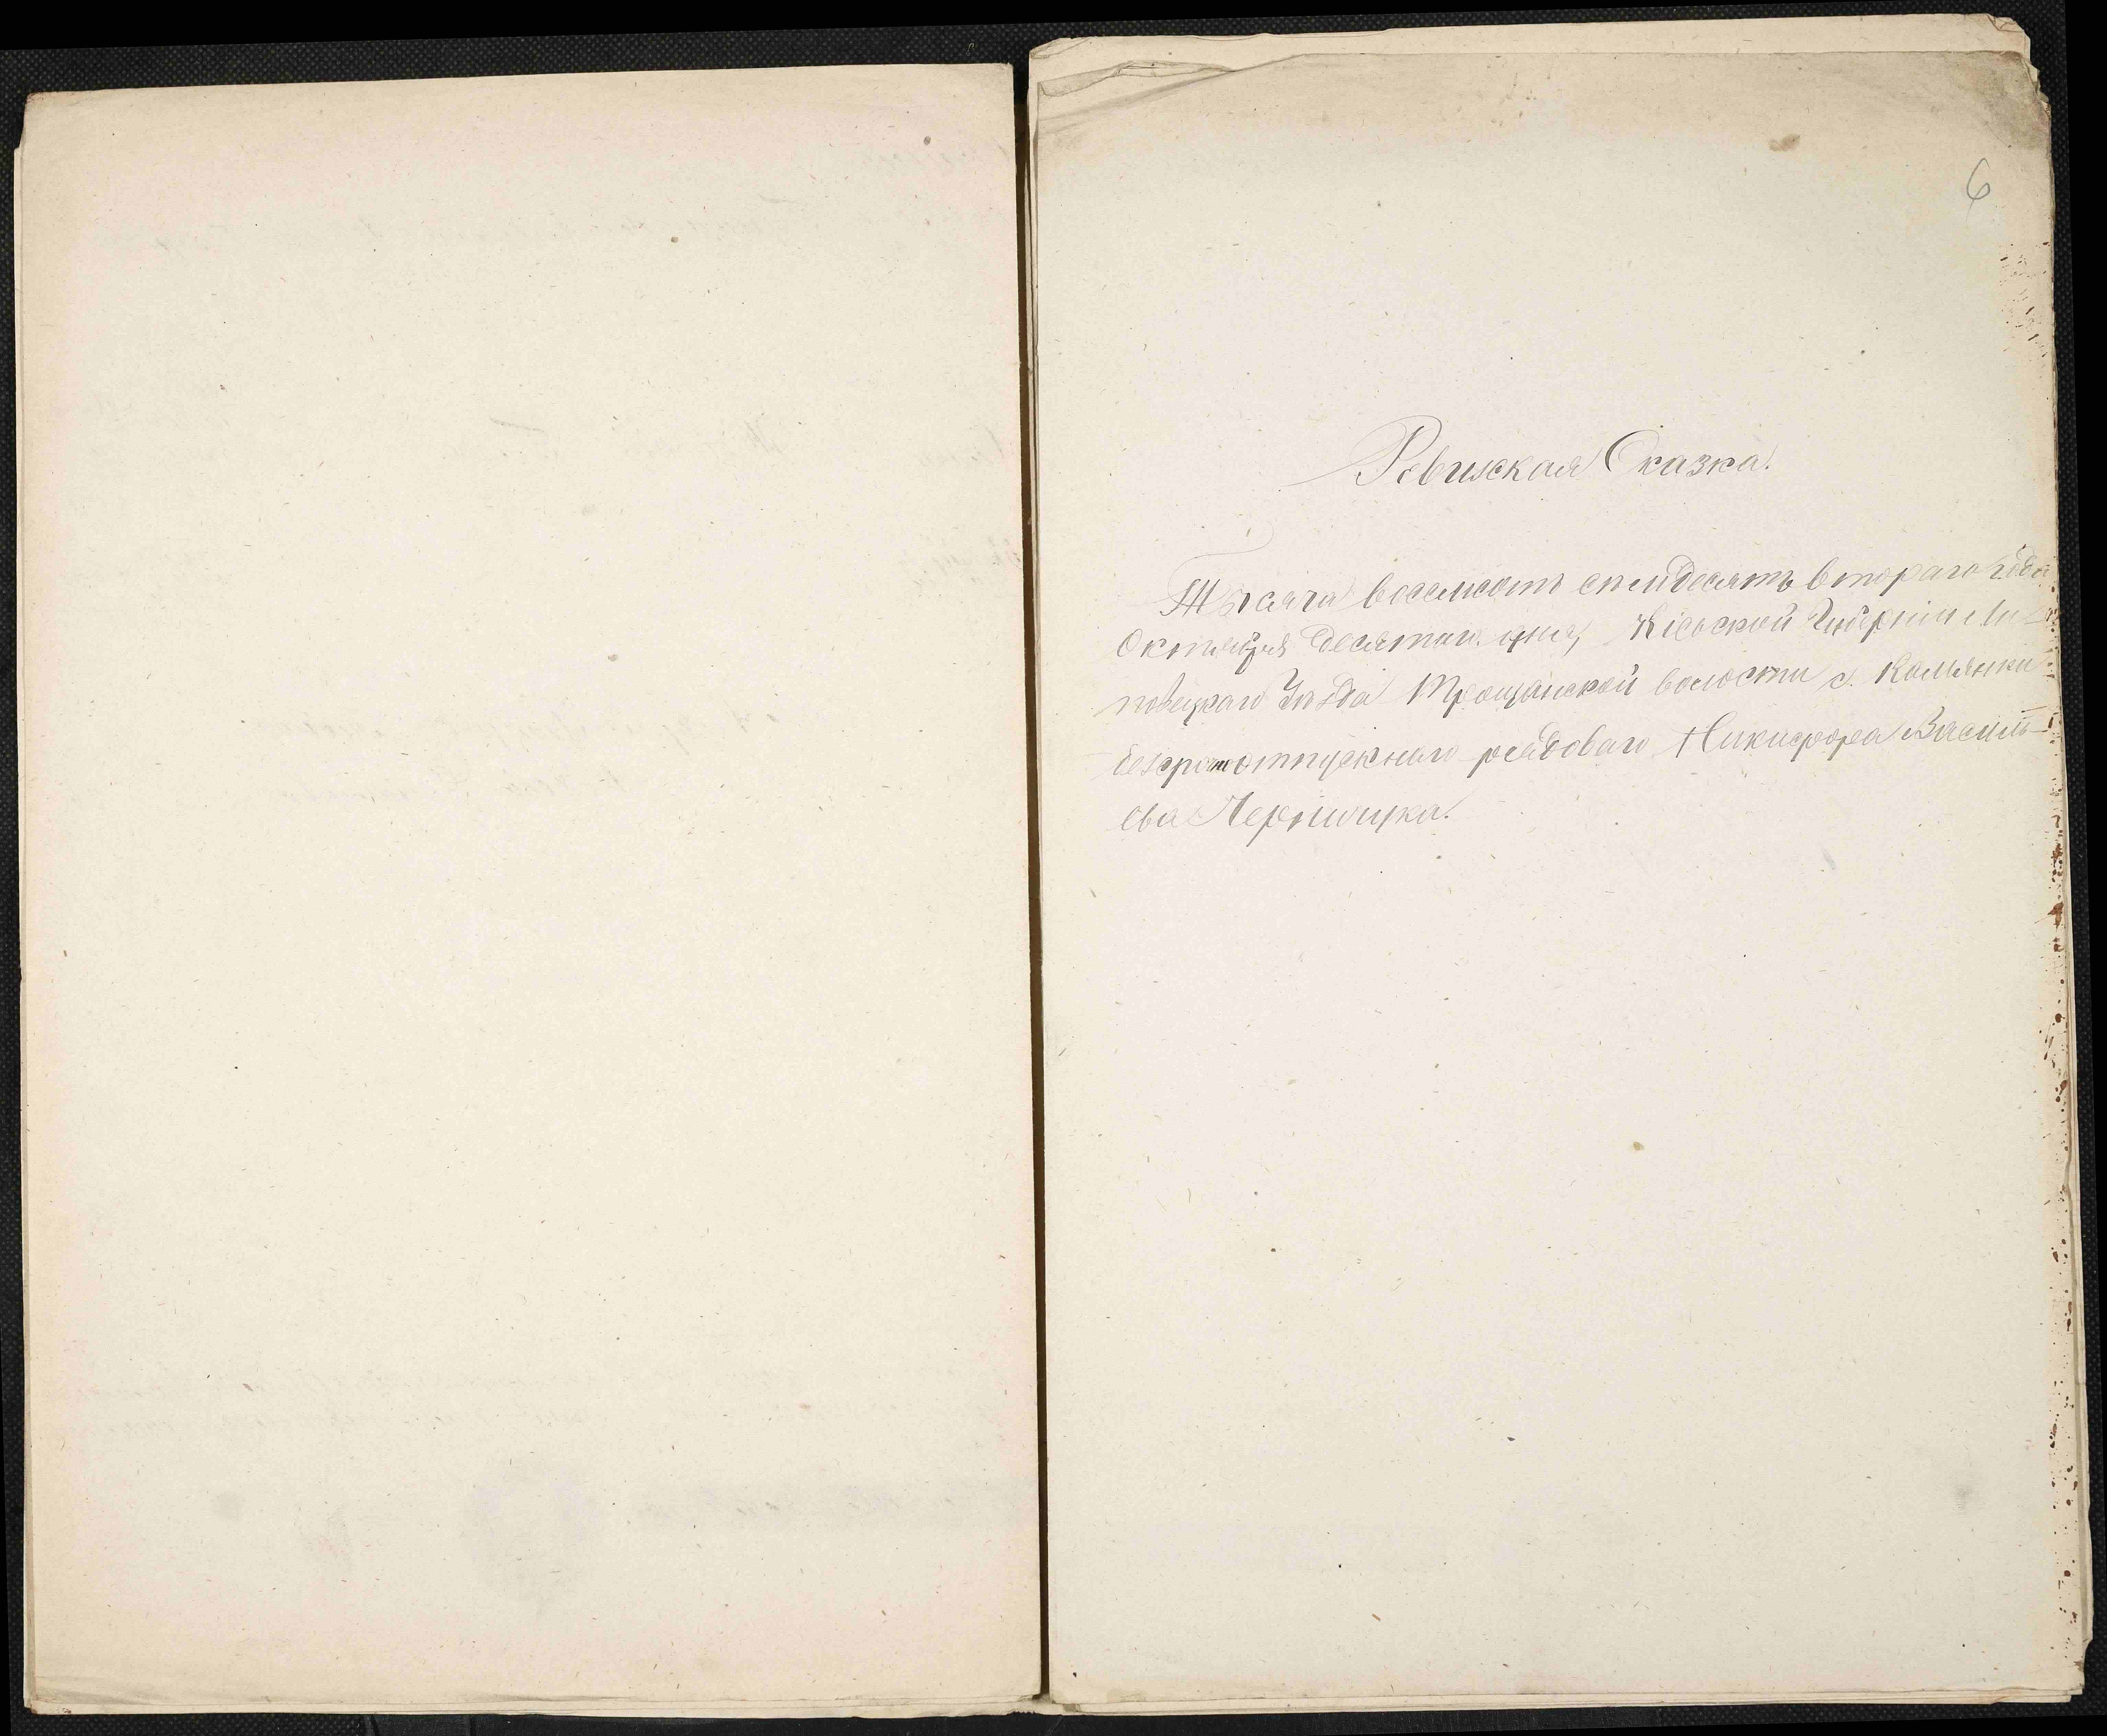 6
Ревизская Сказка.
Тысяча восемсотъ семидесятъ втораго года
Октября десятаго дня, Кіевской Губерніи Ли-
повецкаго Уѣзда Трощанской волости с.
безсрочноотпускнаго рядоваго Никифора Василь-
ева